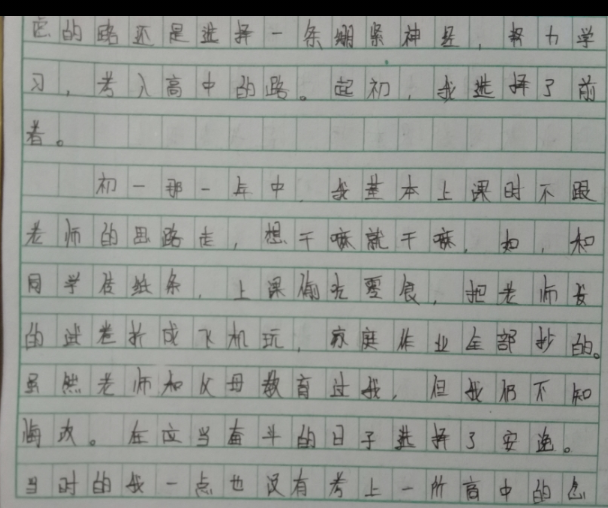 逸的路还是选择一条绷紧神经，努力学
习，考入高中的路。起初，我选择了前
者。
初一那一年中，我基本上课时不跟
老师的思路走，想干嘛就干嘛，如，和
同学传纸条，上课偷吃零食，把老师发
的试卷折成飞机玩，家庭作业全部抄的。
虽然老师和父母教育过我，但我仍不知
悔改。在应当奋斗的日子选择了安逸。
当时的我一点也没有考上一所高中的